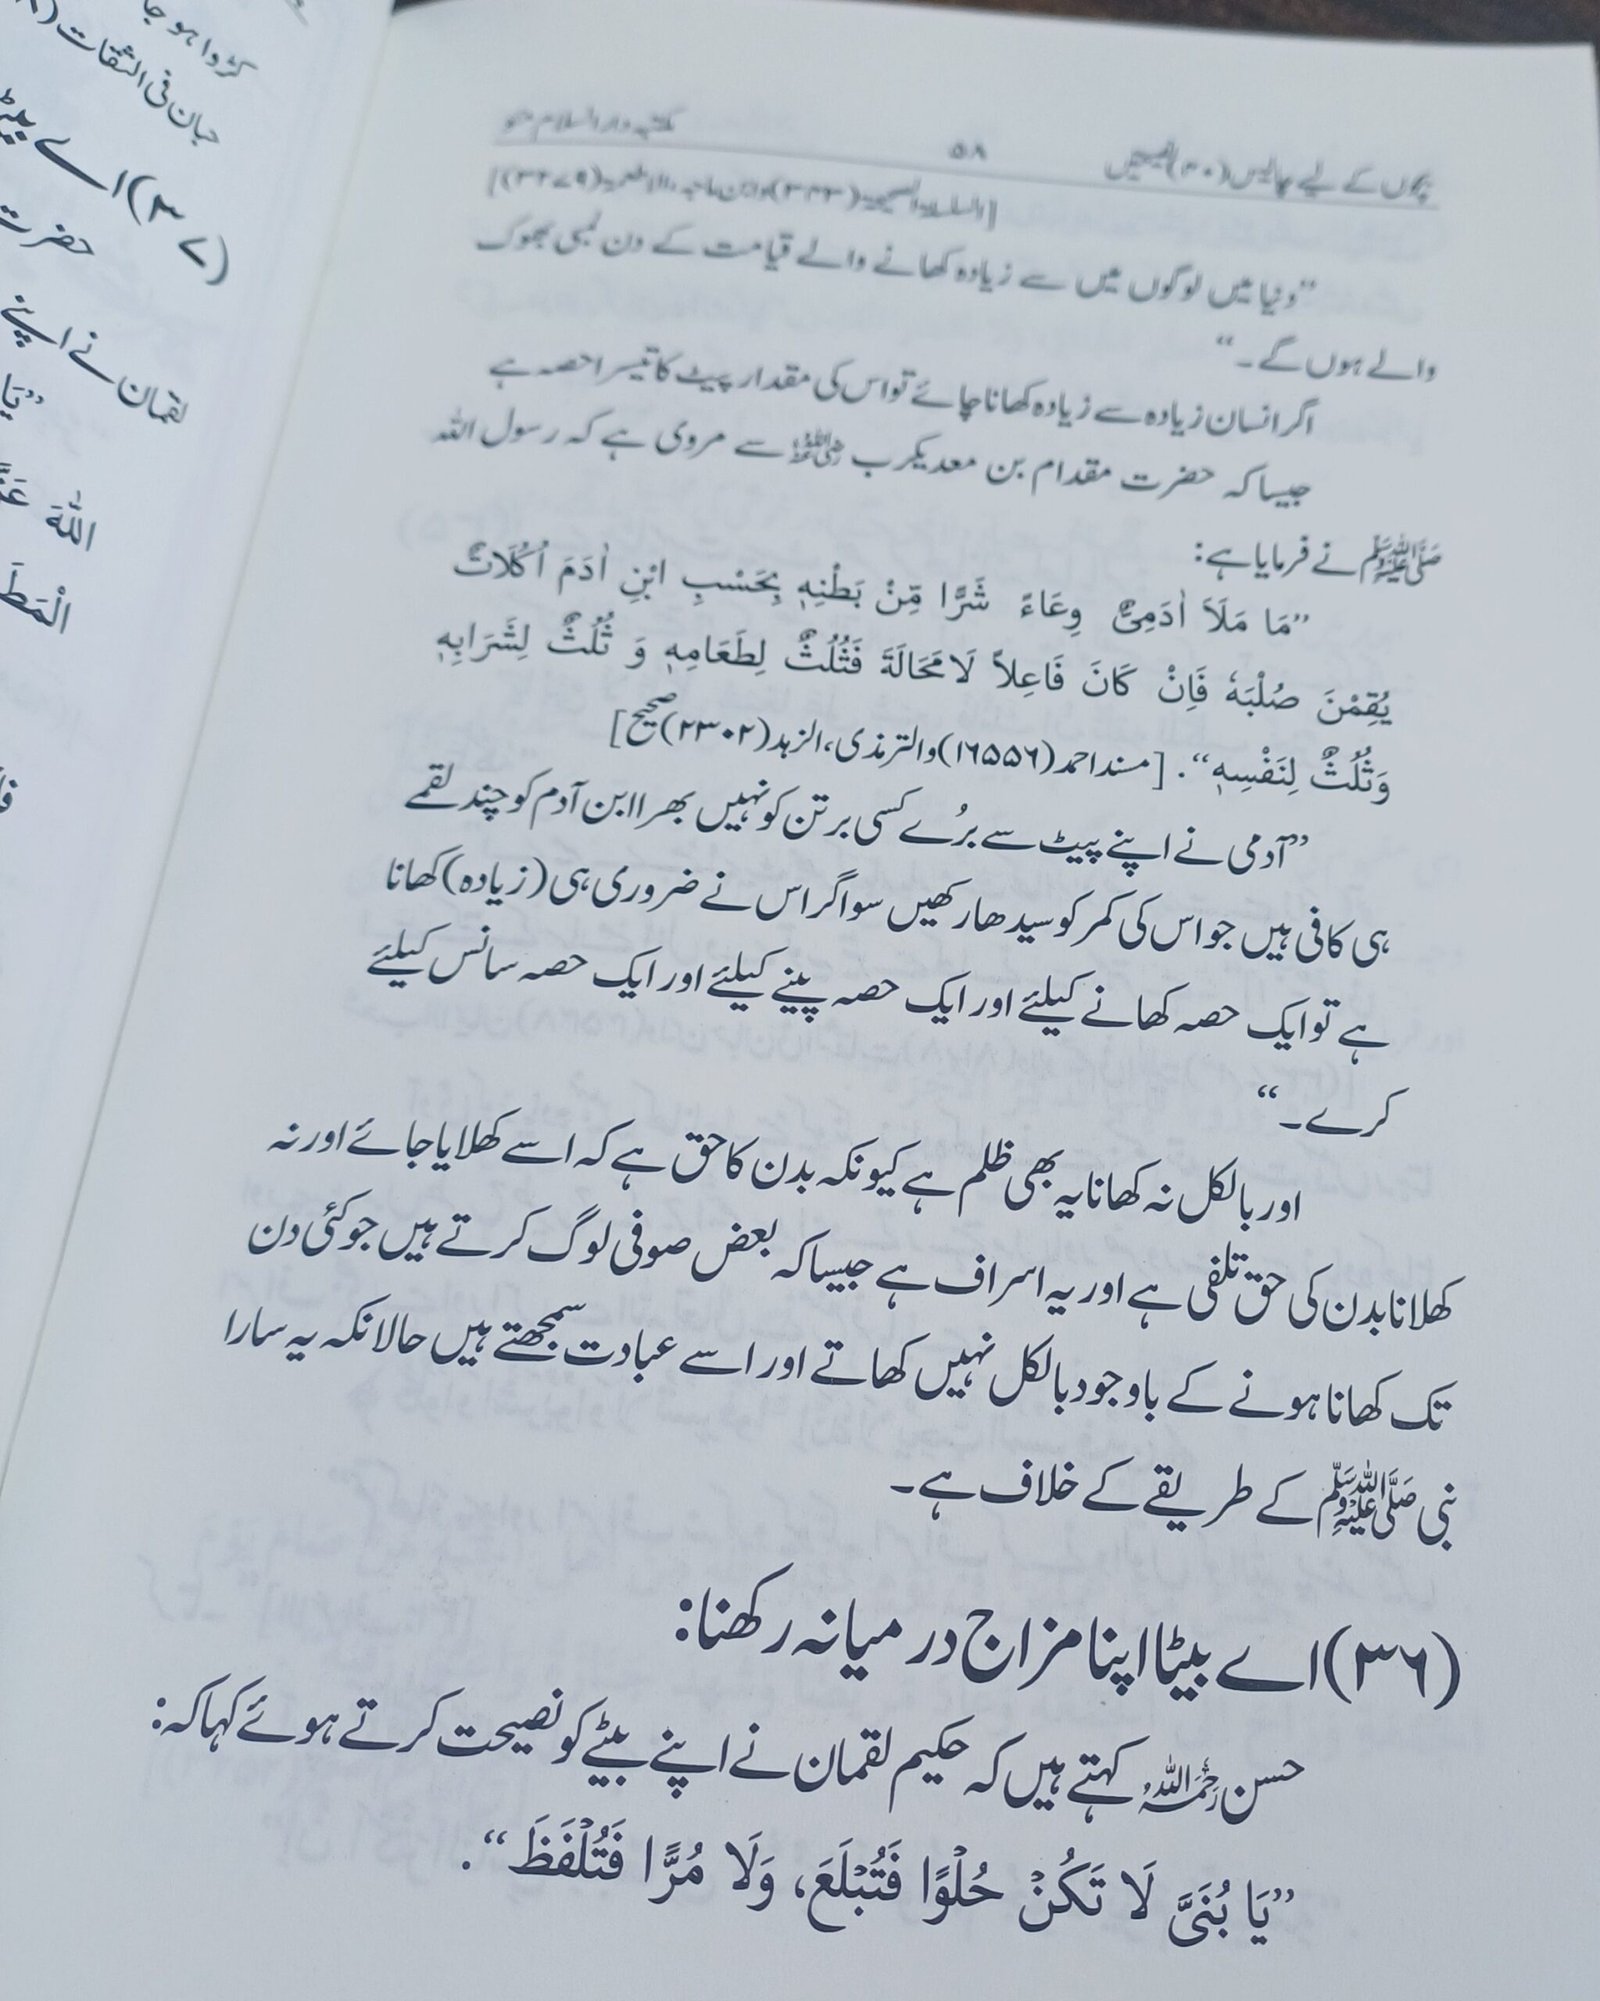 بچوں کے لیے چالیس (۴۰) نصیحتیں ۵۸ مکتبہ دارالسلام
"دنیا میں لوگوں میں سے زیادہ کھانے والے قیامت کے دن لمبی بھوک
والے ہوں گے۔"
اگر انسان زیادہ سے زیادہ کھانا چاہے تو اس کی مقدار پیٹ کا تیسرا حصہ ہے
جیسا کہ حضرت مقدام بن معدیکرب رضی اللہ عنہ سے مروی ہے کہ رسول اللہ
ﷺ نے فرمایا ہے:
"مَا مَلَاَ اٰدَمِیٌّ وِعَاءً شَرًّا مِّنْ بَطْنِهٖ بِحَسْبِ ابْنِ اٰدَمَ اُكُلَاتٌ
يُقِمْنَ صُلْبَهٗ فَاِنْ كَانَ فَاعِلاً لَا مَحَالَةَ فَثُلُثٌ لِطَعَامِهٖ وَ ثُلُثٌ لِشَرَابِهٖ
وَثُلُثٌ لِنَفْسِهٖ". [مسند احمد (۱۶۵۵۶) والترمذی، الزہد (۲۳۰۲) صحیح]
"آدمی نے اپنے پیٹ سے برُے کسی برتن کو نہیں بھرا ابن آدم کو چند لقمے
ہی کافی ہیں جو اس کی کمر کو سیدھا رکھیں سو اگر اس نے ضروری ہی (زیادہ) کھانا
ہے تو ایک حصہ کھانے کیلئے اور ایک حصہ پینے کیلئے اور ایک حصہ سانس کیلئے
کرے۔"
اور بالکل نہ کھانا یہ بھی ظلم ہے کیونکہ بدن کا حق ہے کہ اسے کھلایا جائے اور نہ
کھلانا بدن کی حق تلفی ہے اور یہ اسراف ہے جیسا کہ بعض صوفی لوگ کرتے ہیں جو کئی دن
تک کھانا ہونے کے باوجود بالکل نہیں کھاتے اور اسے عبادت سمجھتے ہیں حالانکہ یہ سارا
نبی ﷺ کے طریقے کے خلاف ہے۔
(۳۶) اے بیٹا اپنا مزاج درمیانہ رکھنا:
حسن رحمہ اللہ کہتے ہیں کہ حکیم لقمان نے اپنے بیٹے کو نصیحت کرتے ہوئے کہا کہ:
"يَا بُنَيَّ لَا تَكُنْ حُلْوًا فَتُبْلَعَ، وَلَا مُرًّا فَتُلْفَظَ".
کڑوا ہو جا
حبان فی الثقات (
(۳۷) اے بیٹ
حضرت
لقمان نے اپنے
"یَا
اللهَ عَزَّ